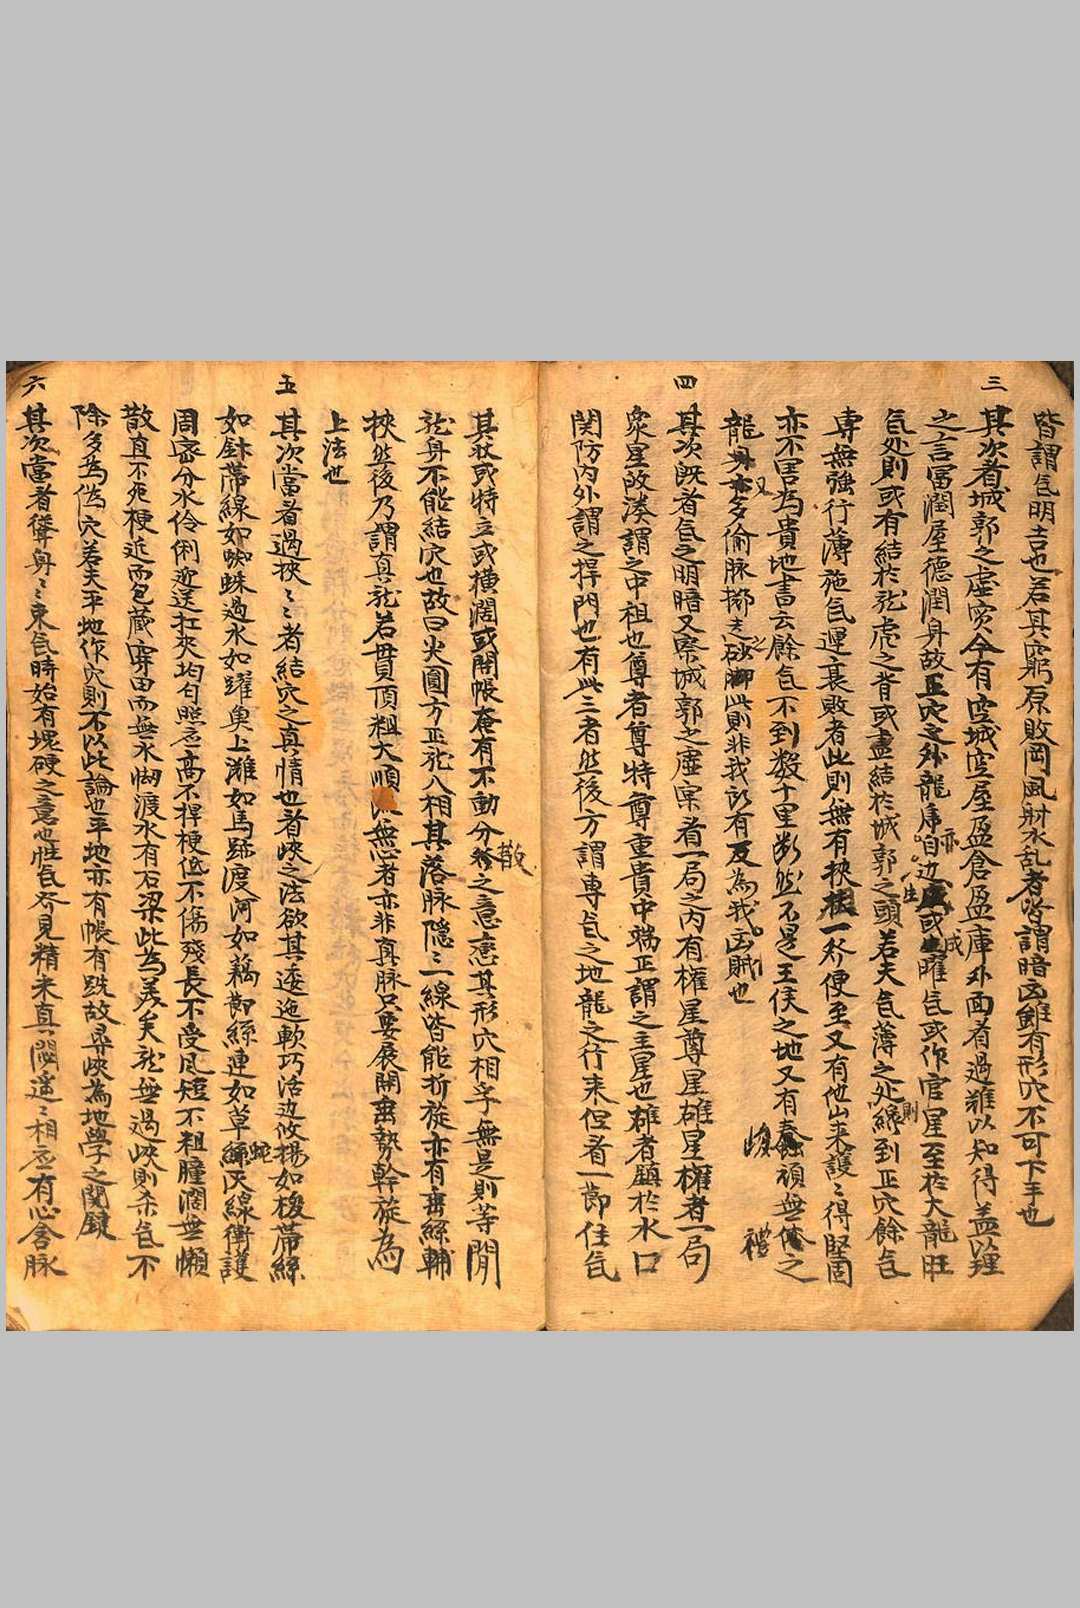 皆謂气明吉也若其窮原敗岡風射水乱者皆謂暗凶雖有形穴不可下手也
三
其次者城郭之虛實今有空城空屋盈倉盈庫外面看過難以知得盖以理
之言富潤屋德潤身故正穴之外龍虎亦自边生或成曜气或作官星至於大龍旺
气处則或有結於龍虎之背或盡結於城郭之頭若夫气薄之处則纔到正穴餘气
專無強行薄施气運衰敗者此則無有挾一外便至又有他山来護〻得堅固
亦不害為貴地書云餘气不到数十里断然不是王侯之地又有蠢頑無之
龍又多偷脉之砂脚此則非我所有反為我凶賊也
四
其次既看气之明暗又察城郭之虛實看一局之内有權星尊星雄星權者一局
衆星故湊謂之中祖也尊者尊特尊重貴中端正謂之主星也雄者鎮於水口
関防内外謂之捍門也有此三者然後方謂專气之地龍之行来但看一節住气
其狀或特立或橫濶或開帳有不動分散之意焉其形穴相孚無是則等閒
龍身不能結穴也故曰火圓方正龍八相其落脉隐〻一線皆能折旋亦有絲輔
挾然後乃謂真龍若貫頂粗大順無忌者亦非真脉只要展開勢幹旋為
上法也
五
其次當看過挾〻者結穴之真情也看峽之法欲其逶迤軟巧活边收揚如梭帶絲
如針帶線如蜘蛛過水如躍魚上灘如馬跡渡河如藕節絲連如草蛇灰線衛護
周密分水伶俐迎送扛夾均匀照應高不捍梗低不傷殘長不受风短不粗腫濶無懶
散真不死梗近而包藏穿田而無水渡水有石梁此為美矣龍無過峽則杀气不
除多為偽穴若夫平地作穴則不以此論也平地亦有帳有跌故尋峽為地學之関鍵
六
其次當看聳身〻〻来气時始有塊硬之意也性气容見精来真遥〻相应有心含脉